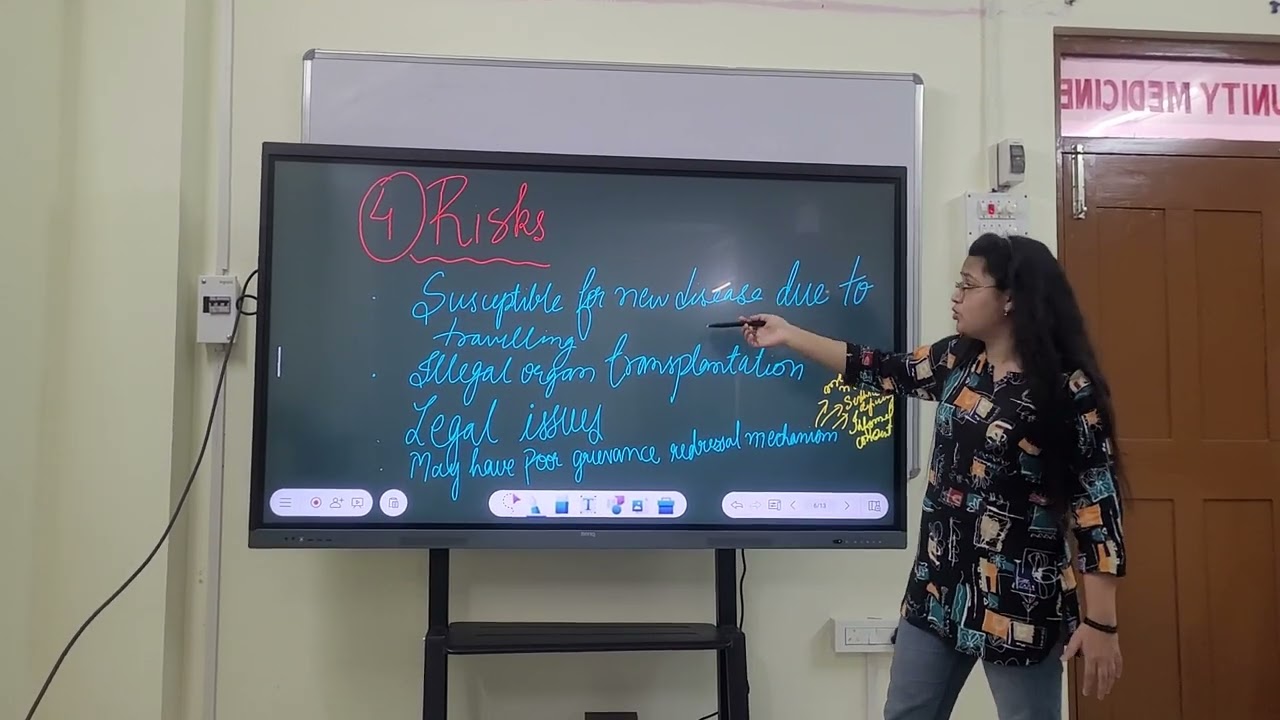 4 Risks
Susceptible for new disease due to
travelling
Illegal organ transplantation
Legal issues
May have poor grievance redressal mechanism
consent
6/13
BenQ
UNITY MEDICINE